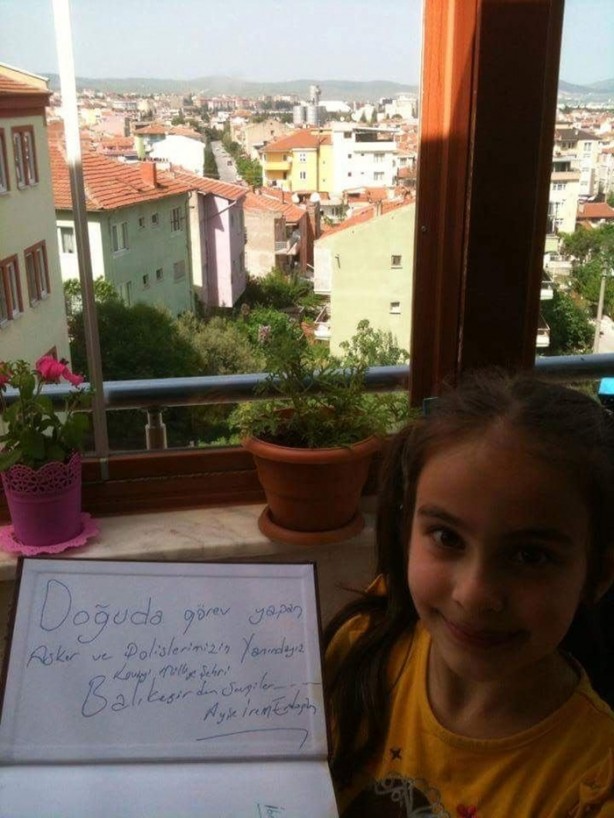 Doğuda görev yapan
Asker ve Polislerimizin Yanındayız
Şehri
Balıkesir'den Sevgiler....
Ayşe İrem